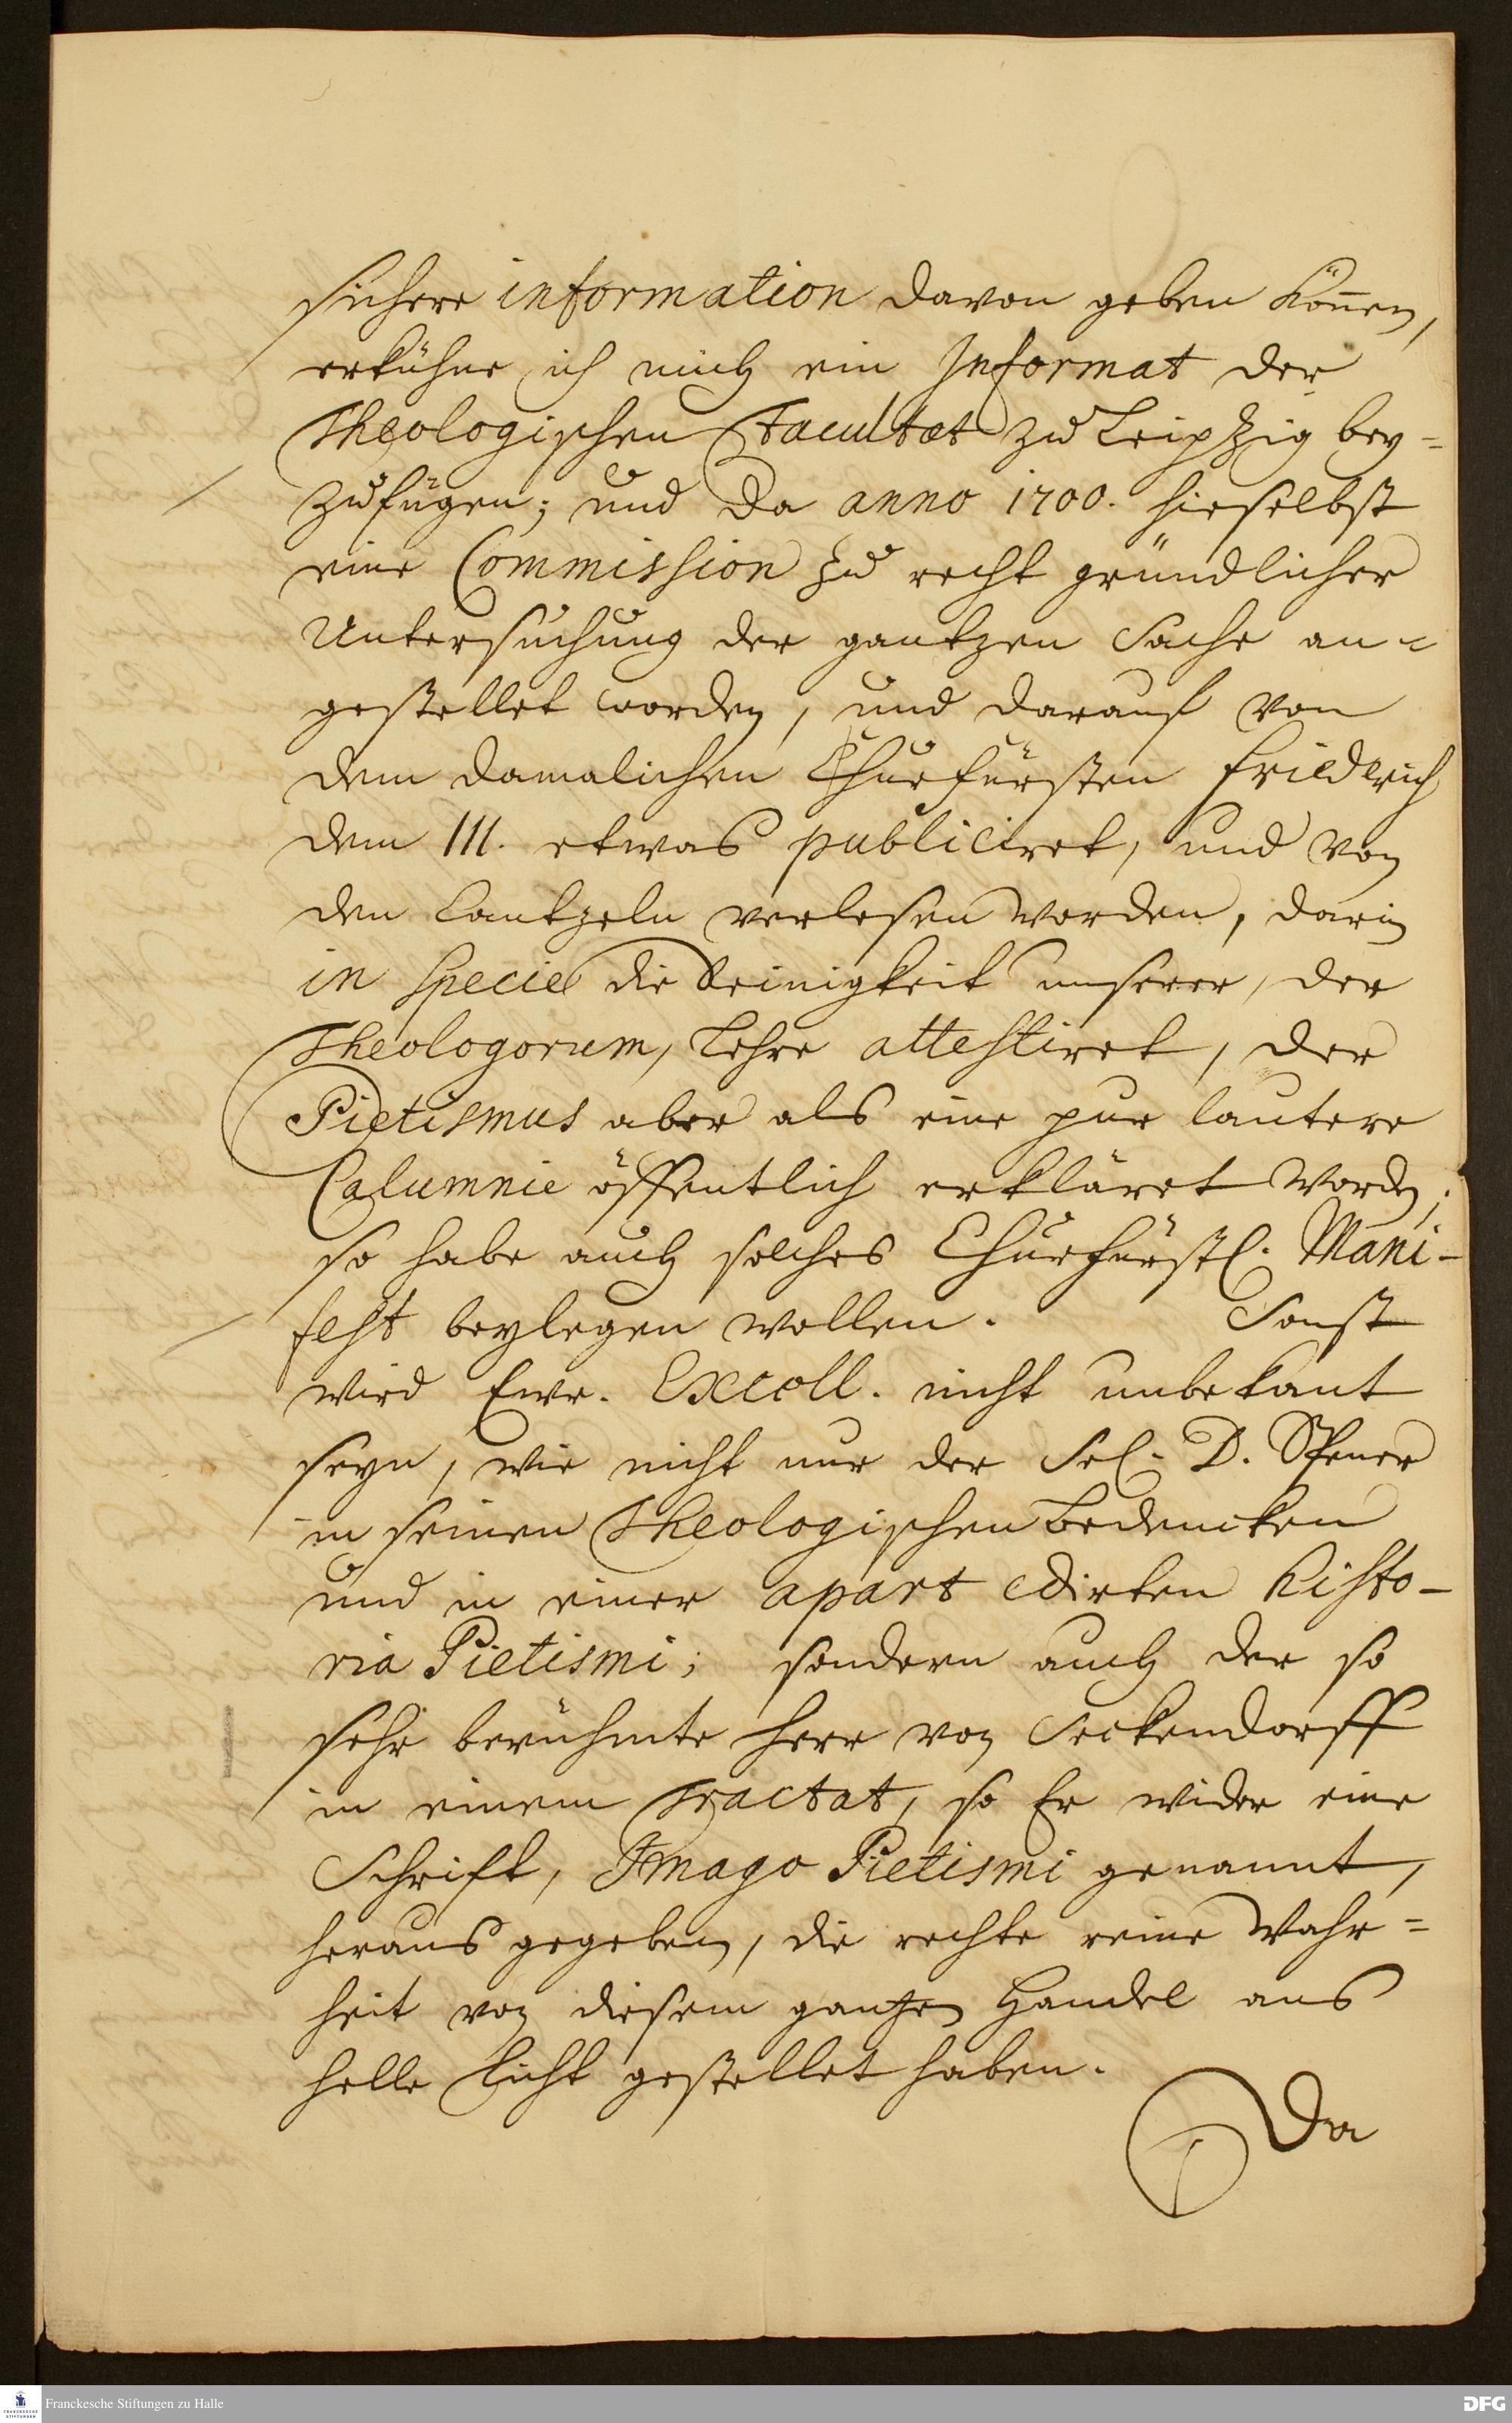 sichere information davon geben können,
erkühne ich mich ein Informat der
Theologischen Facultæt zu Leipzig bey=
zufügen; und da anno 1700. hieselbst
eine Commission zu recht gründlicher
Untersuchung der gantzen Sache an=
gestellet worden, und darauf von
dem damalichen Churfürsten Friedrich
dem III. etwas publiciret, und von
den Cantzeln verlesen worden, darin
in specie die Reinigkeit unserer, der
Theologorum, Lehre attestiret, der
Pietismus aber als eine pur lautere
Calumnie öffentlich erkläret worden;
so habe auch solches Churfürstl. Mani-
fest beylegen wollen. Sonst
wird Ewr. Excell. nicht unbekant
seyn, wie nicht nur der Sel. D. Spener
in seinen Theologischen Bedencken
und in einer apart edirten Histo-
ria Pietismi; sondern auch der so
sehr berühmte Herr von Seckendorff
in einem Tractat, so Er wider eine
Schrift, Imago Pietismi genannt,
heraus gegeben, die rechte reine Wahr=
heit von diesem gantzen Handel ans
helle Licht gestellet haben.
Da
Franckesche Stiftungen zu Halle
DFG